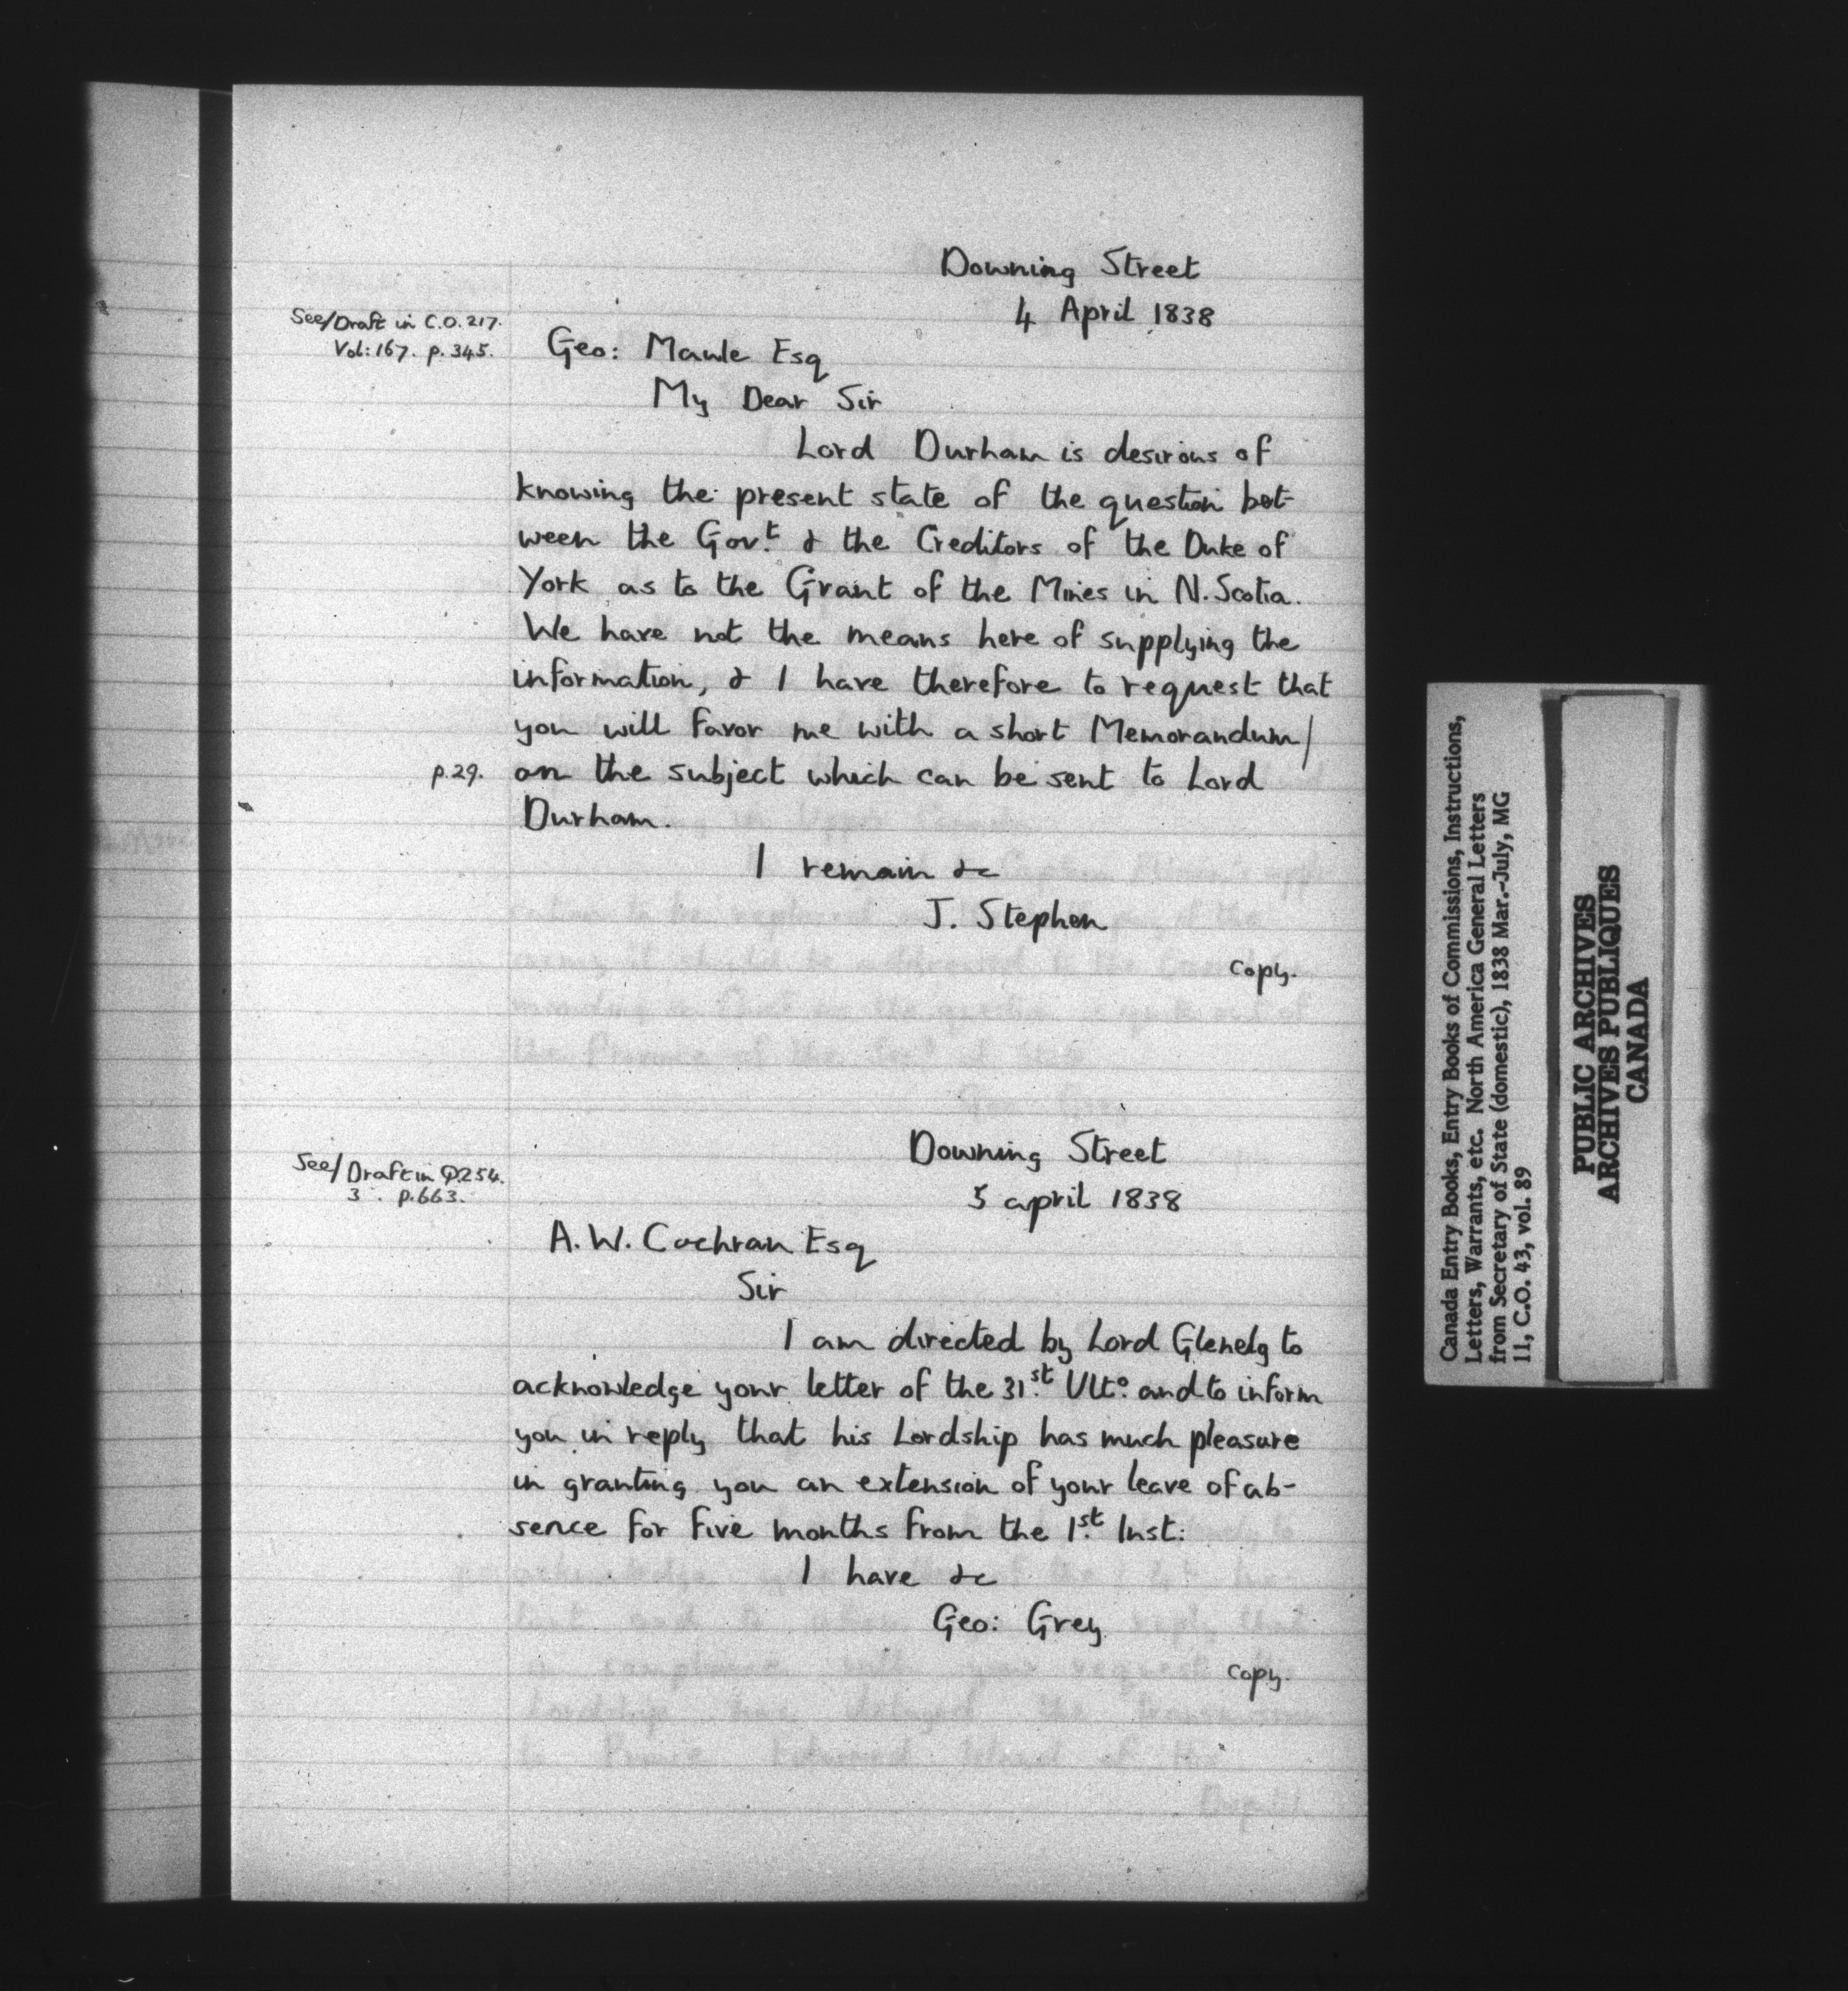 Downing Street
4 April 1838
See/Draft in C.O. 217.
Vol: 167. p. 345.
Geo: Maule Esq
My Dear Sir
Lord Durham is desirous of
knowing the present state of the question bet-
ween the Gov.t & the Creditors of the Duke of
York as to the Grant of the Mines in N. Scotia.
We have not the means here of supplying the
information, & I have therefore to request that
you will favor me with a short Memorandum/
p.29. on the subject which can be sent to Lord
Durham.
I remain &c
J. Stephen
copy.
Downing Street
See/Draft in Q.254.
3 . p.663.
5 april 1838
A. W. Cochran Esq
Sir
I am directed by Lord Glenelg to
acknowledge your letter of the 31.st Ult.o and to inform
you in reply that his Lordship has much pleasure
in granting you an extension of your leave of ab-
sence for five months from the 1.st Inst:
I have &c
Geo: Grey
copy.
Canada Entry Books, Entry Books of Commissions, Instructions,
Letters, Warrants, etc. North America General Letters
from Secretary of State (domestic), 1838 Mar.-July, MG
11, C.O. 43, vol. 89
PUBLIC ARCHIVES
ARCHIVES PUBLIQUES
CANADA